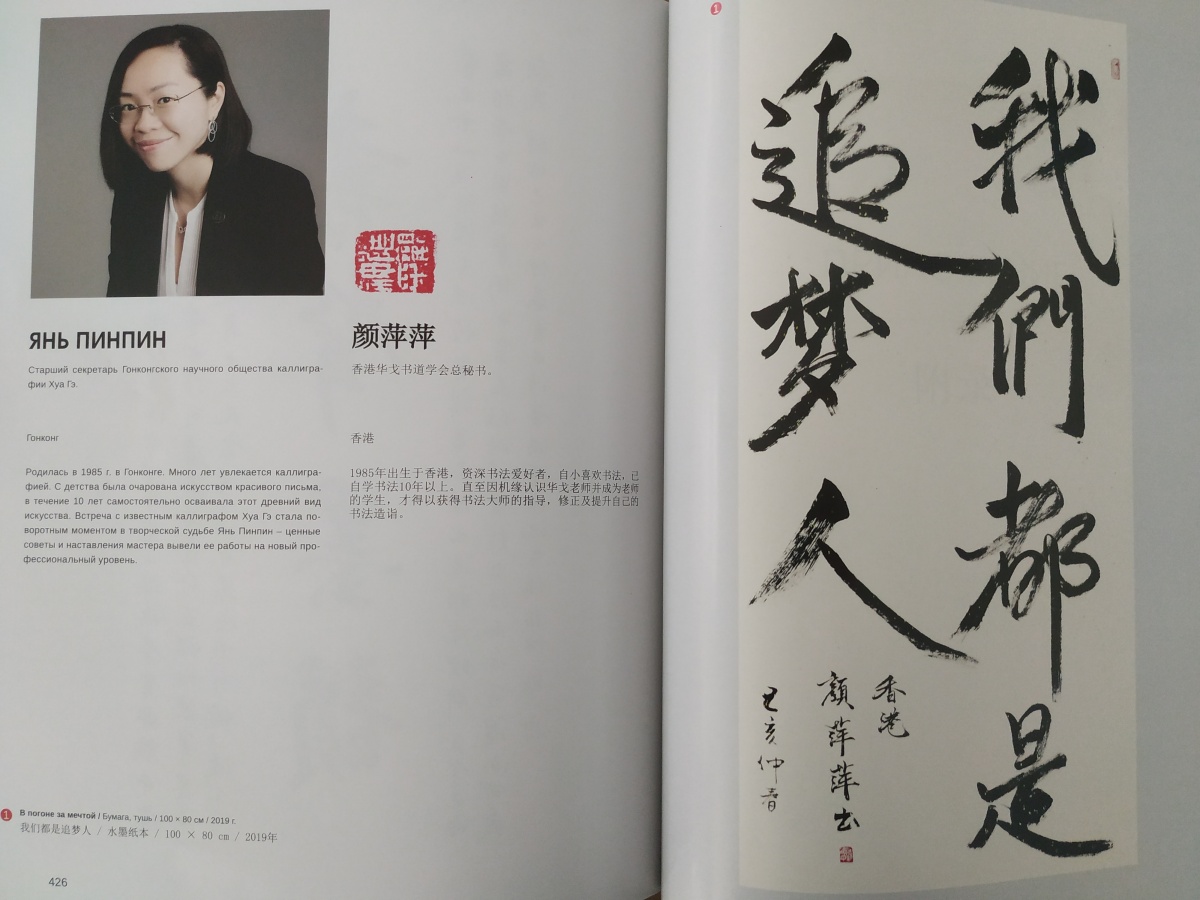 ЯНЬ ПИНПИН
Старший секретарь Гонконгского научного общества каллигра-
фии Хуа Гэ.
Гонконг
Родилась в 1985 г. в Гонконге. Много лет увлекается каллигра-
фией. С детства была очарована искусством красивого письма,
в течение 10 лет самостоятельно осваивала этот древний вид
искусства. Встреча с известным каллиграфом Хуа Гэ стала по-
воротным моментом в творческой судьбе Янь Пинпин – ценные
советы и наставления мастера вывели ее работы на новый про-
фессиональный уровень.
颜萍萍
香港华戈书道学会总秘书。
香港
1985年出生于香港，资深书法爱好者，自小喜欢书法，已
自学书法10年以上。直至因机缘认识华戈老师并成为老师
的学生，才得以获得书法大师的指导，修正及提升自己的
书法造诣。
1 В погоне за мечтой / Бумага, тушь / 100 × 80 см / 2019 г.
我们都是追梦人 / 水墨纸本 / 100 × 80 cm / 2019年
426
1
我們都是
追梦人
香港
顏萍萍书
己亥仲春